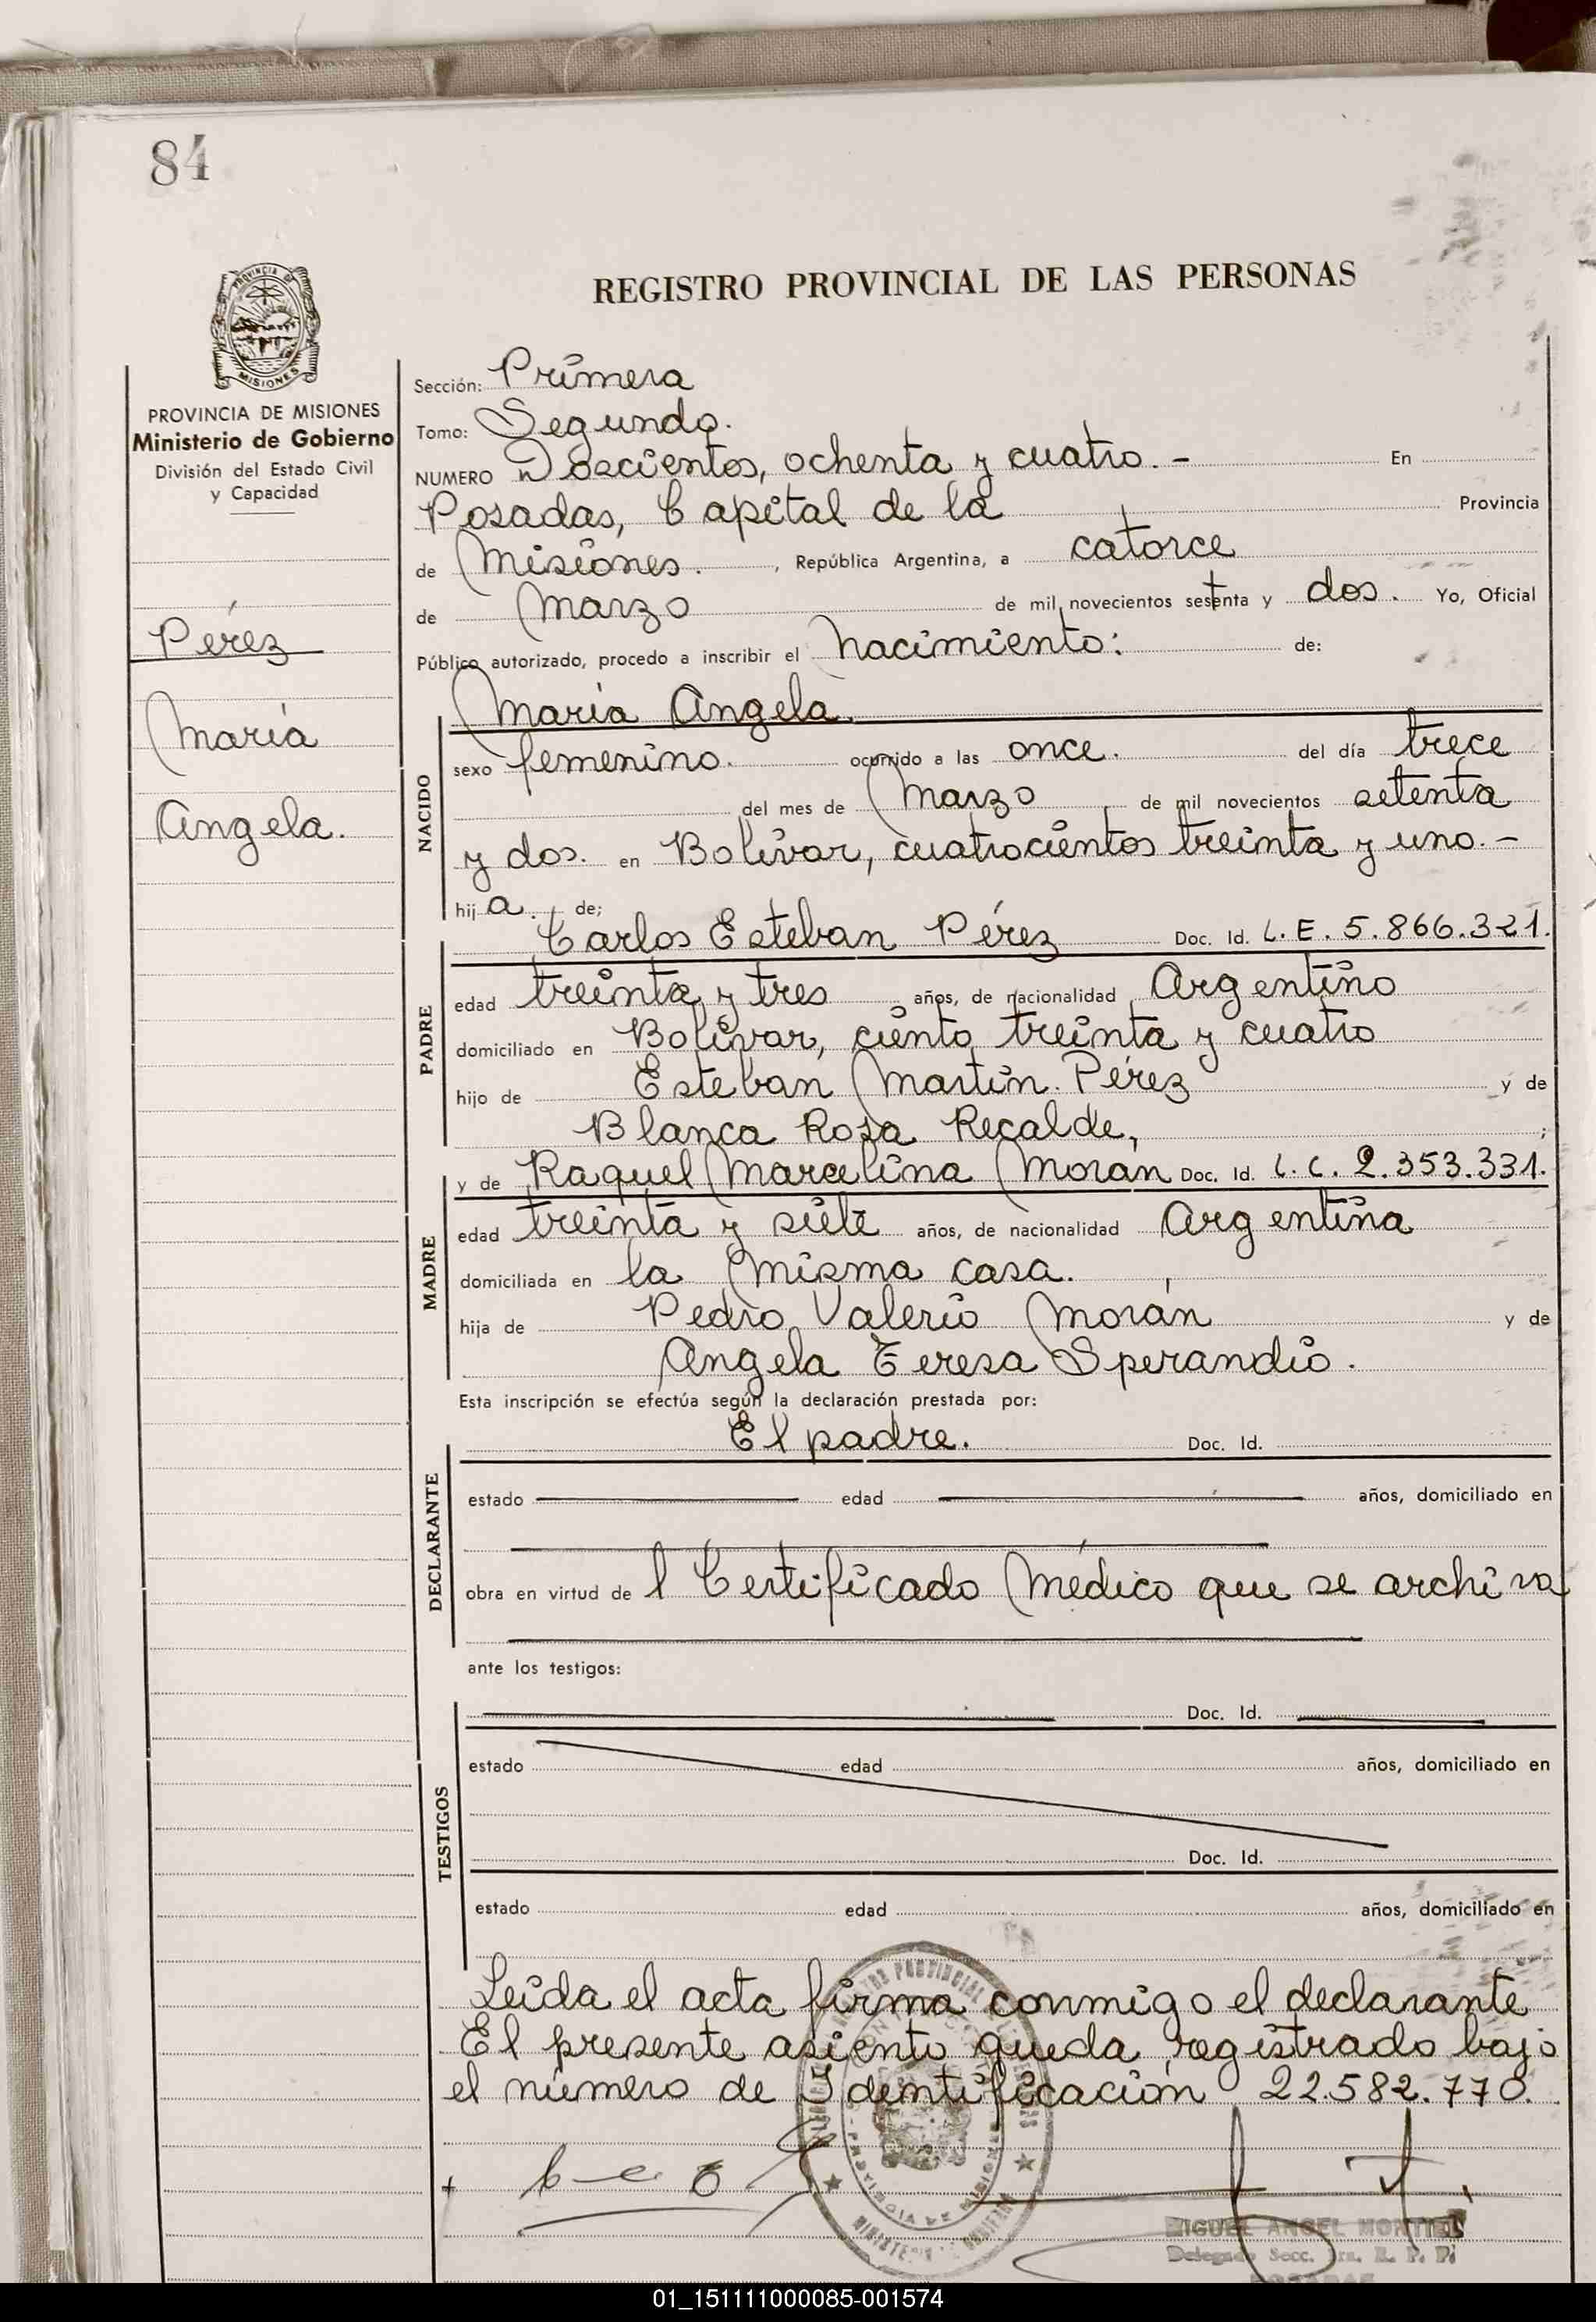 84
PROVINCIA DE
MISIONES
PROVINCIA DE MISIONES
Ministerio de Gobierno
División del Estado Civil
y Capacidad
Pérez
María
Angela.
REGISTRO PROVINCIAL DE LAS PERSONAS
Sección: Primera
Tomo: Segundo.
NUMERO Doscientos, ochenta y cuatro. - En
Posadas, Capital de la Provincia
de Misiones. , República Argentina, a catorce
de Marzo de mil novecientos setenta y dos. Yo, Oficial
Público autorizado, procedo a inscribir el nacimiento: de:
María Angela.
NACIDO
sexo femenino. ocurrido a las once. del día trece
del mes de Marzo de mil novecientos setenta
y dos. en Bolívar, cuatrocientos treinta y uno. -
hij a. de;
Carlos Esteban Pérez Doc. Id. L.E. 5.866.321.
PADRE
edad treinta y tres años, de nacionalidad Argentino
domiciliado en Bolívar, ciento treinta y cuatro
hijo de Esteban Martín Pérez y de
Blanca Rosa Recalde, ;
y de Raquel Marcelina Morán Doc. Id. L.C. 2.353.331.
MADRE
edad treinta y siete años, de nacionalidad Argentina
domiciliada en la misma casa.
hija de Pedro Valerio Morán y de
Angela Teresa Sperandio.
Esta inscripción se efectúa según la declaración prestada por:
El padre. Doc. Id.
DECLARANTE
estado edad años, domiciliado en
obra en virtud de l Certificado Médico que se archiva
ante los testigos:
Doc. Id.
TESTIGOS
estado edad años, domiciliado en
Doc. Id.
estado edad años, domiciliado en
Leída el acta firma conmigo el declarante
El presente asiento queda registrado bajo
el número de Identificación 22.582.770.
MIGUEL ANGEL MONTIEL
Delegado Secc. 1ra. R. P. P.
POSADAS
01_151111000085-001574